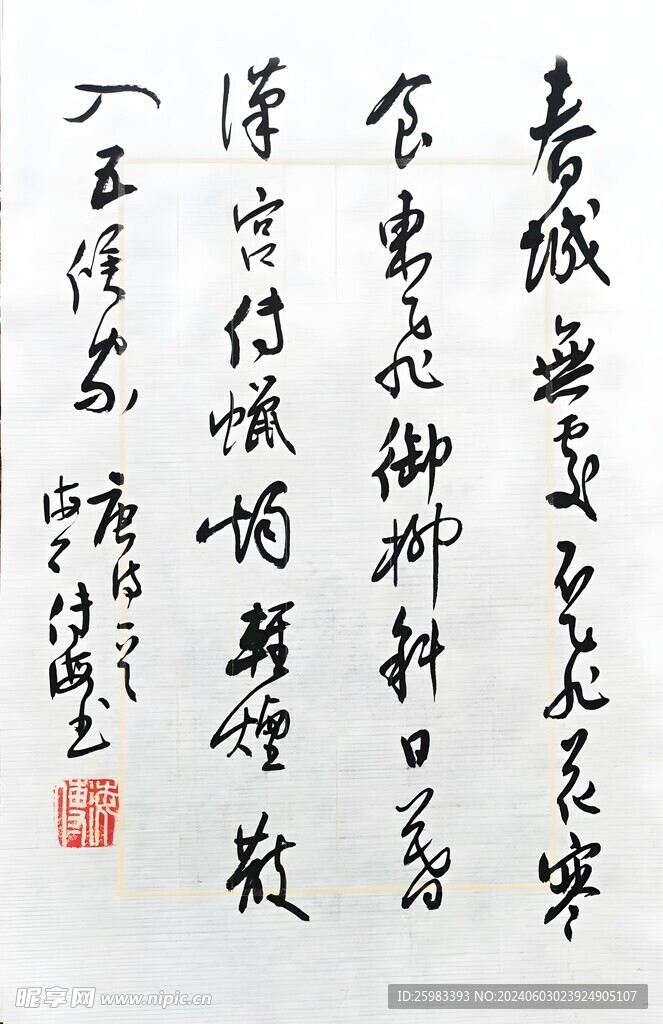 春城無處不飛花寒
食東風御柳斜日暮
漢宮傳蠟燭輕煙散
入五侯家
唐诗一首
海书
昵享网 www.nipic.cn
ID:25983393 NO:20240603023924905107